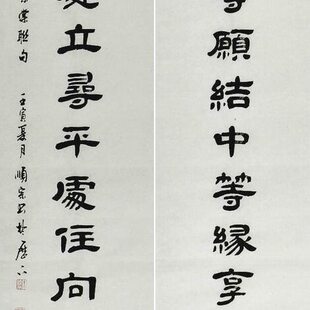 願結中等緣享
立尋平處住向
棠聯句 壬寅夏月順宗書於歷下